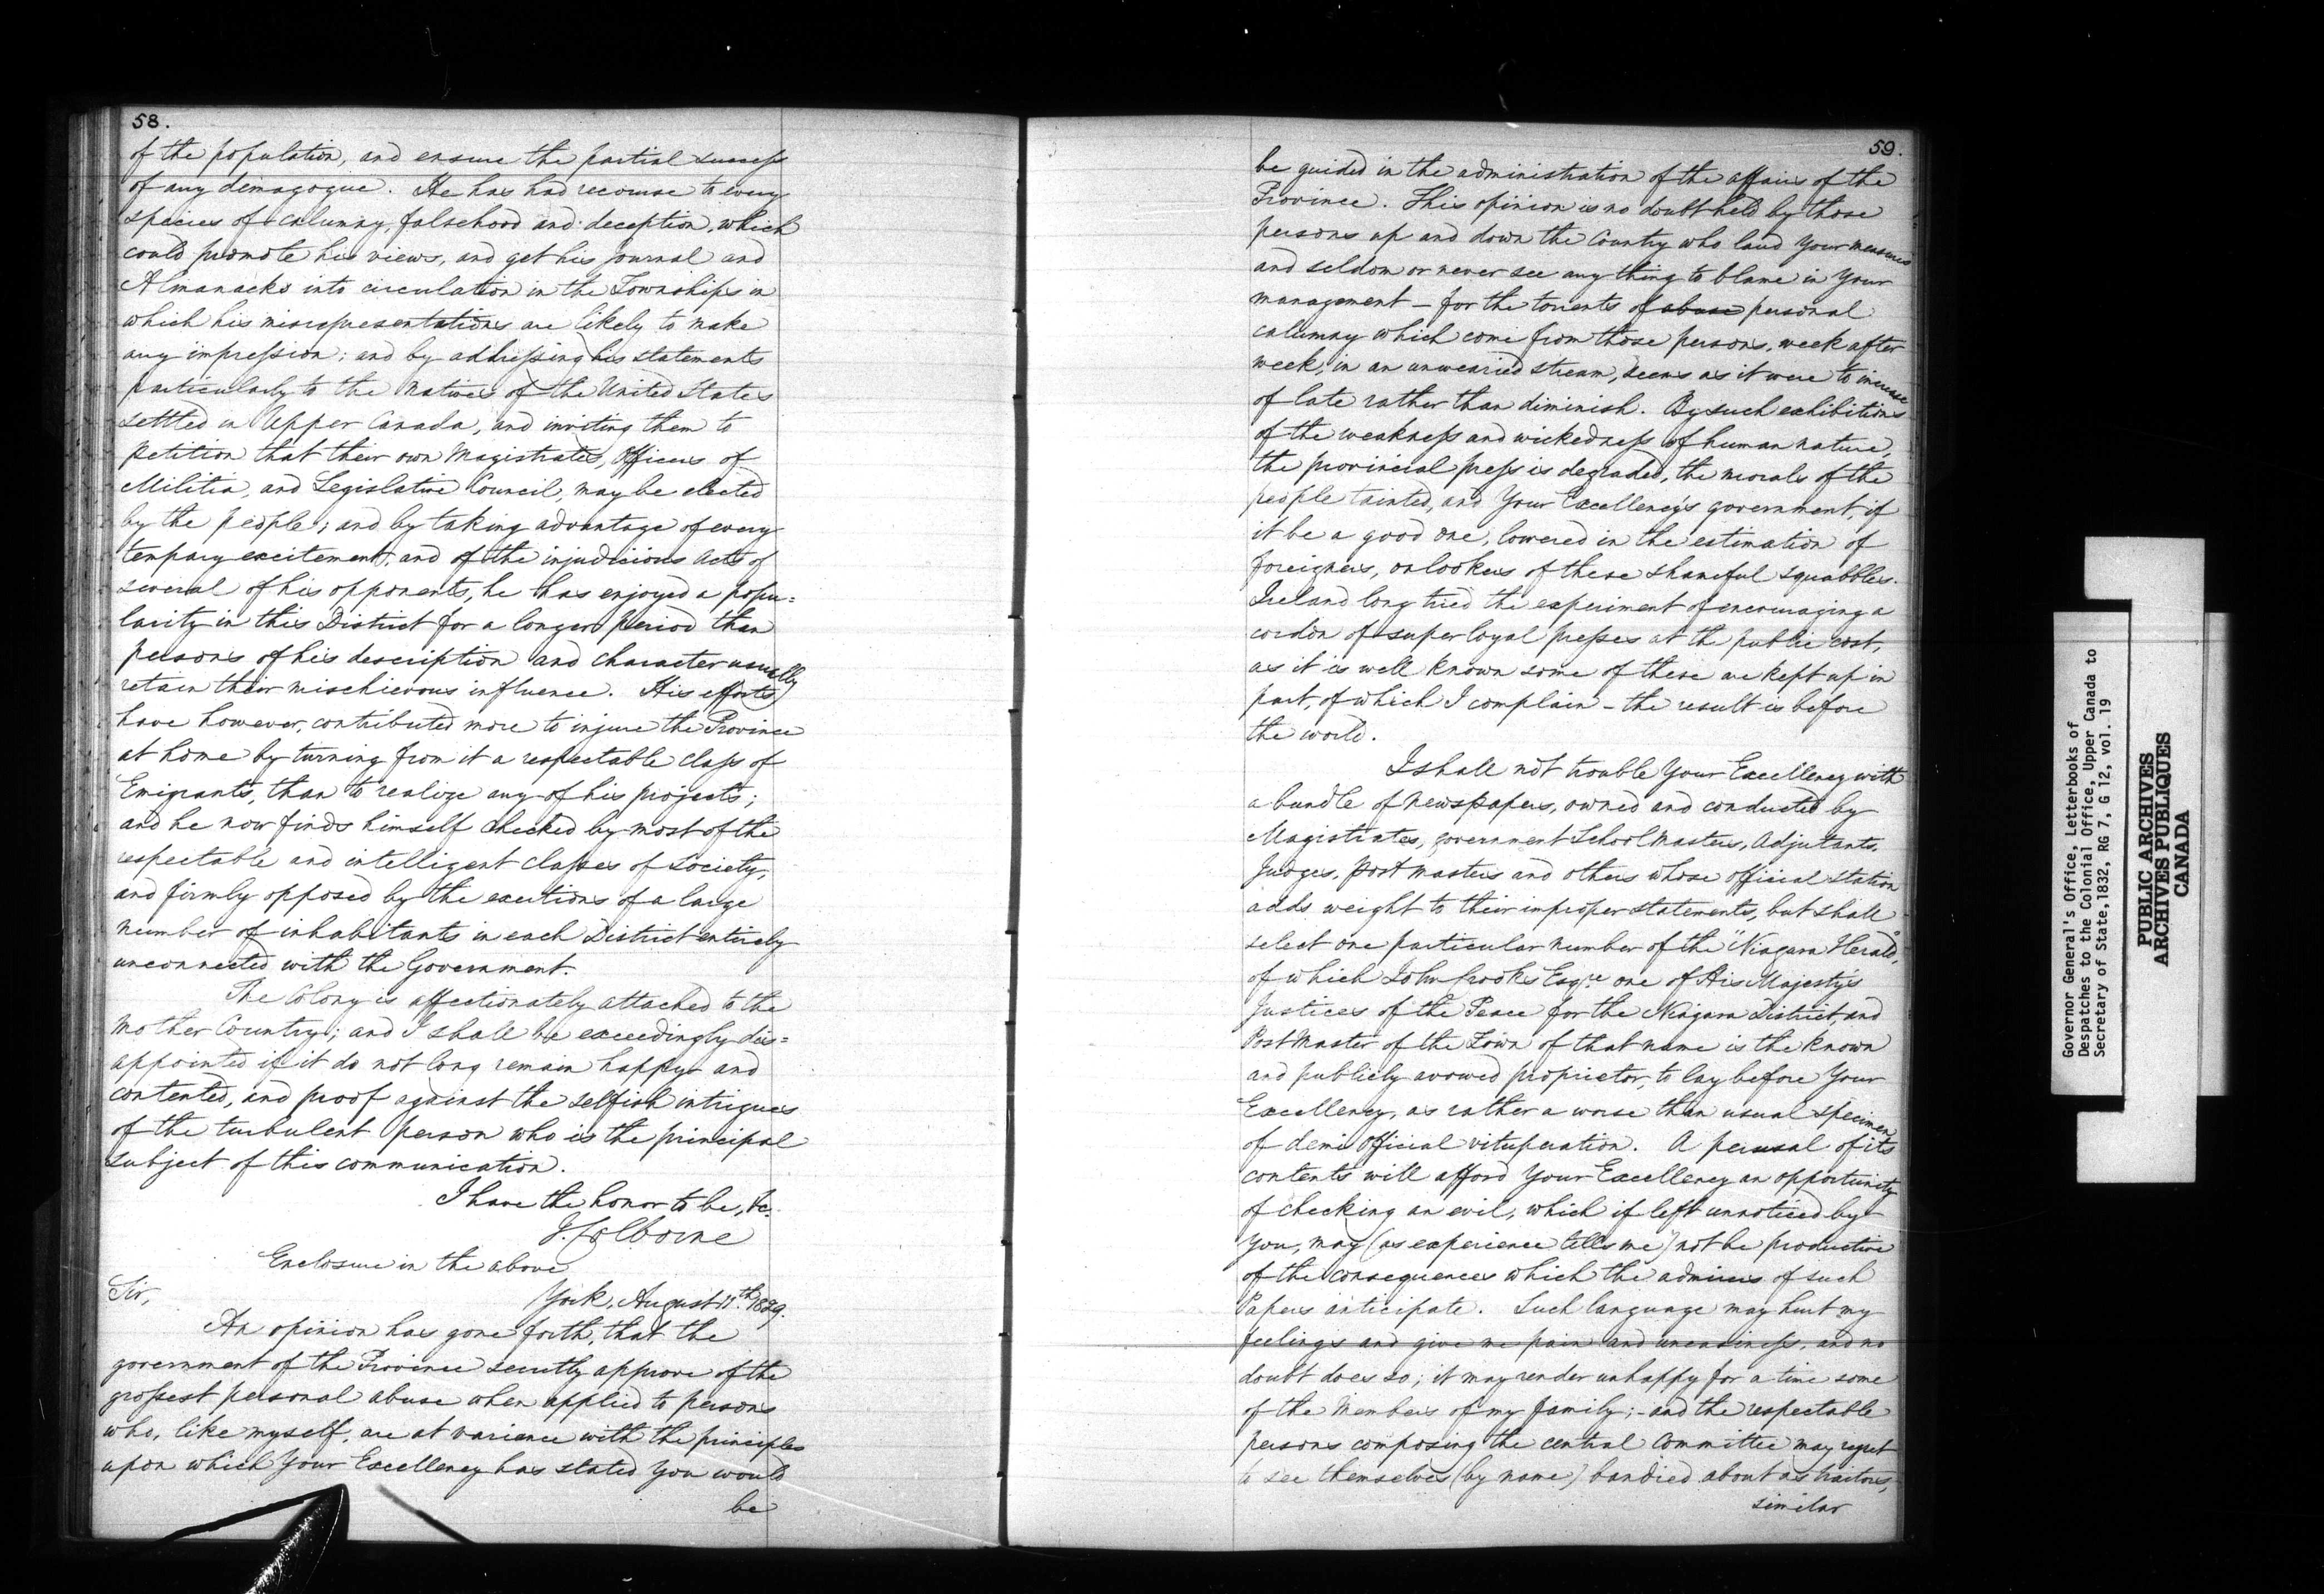 58.
of the population, and ensure the partial success
of any demagogue. He has had recourse to every
species of calumny, falsehood and deception, which
could promote his views, and get his journal and
Almanacks into circulation in the Townships in
which his misrepresentations are likely to make
any impression; and by addressing his statements
particularly to the natives of the United States
settled in Upper Canada, and inviting them to
petition that their own Magistrates, Officers of
Militia, and Legislative Council, may be elected
by the people; and by taking advantage of every
tempary excitement, and of the injudicious acts of
several of his opponents, he has enjoyed a popu=
larity in this District for a longer period than
persons of his description and character usually
retain their mischievous influence. His efforts
have however, contributed more to injure the Province
at home by turning from it a respectable class of
Emigrants, than to realize any of his projects;
and he now finds himself checked by most of the
respectable and intelligent classes of Society,
and firmly opposed by the exertions of a large
number of inhabitants in each District entirely
unconnected with the Government.
The Colony is affectionately attached to the
Mother Country; and I shall be exceedingly dis=
appointed if it do not long remain happy and
contented, and proof against the selfish intrigues
of the turbulent person who is the principal
subject of this communication.
I have the honor to be, &c.
J. Colborne
Enclosure in the above
Sir, York, August 11th 1829.
An opinion has gone forth, that the
government of the Province secretly approve of the
grossest personal abuse when applied to persons
who, like myself, are at varience with the principles
upon which Your Excellency has stated you would
be
59.
be guided in the administration of the affairs of the
Province. This opinion is no doubt held by those
persons up and down the Country who laud Your measures
and seldom or never see any thing to blame in Your
management — for the torrents of abuse personal
calumny which come from those persons, week after
week, in an unwearied stream, seems as it were to increase
of late rather than diminish. By such exhibitions
of the weakness and wickedness of human nature,
the provincial press is degraded, the morals of the
people tainted, and Your Excellency's government, if
it be a good one, lowered in the estimation of
foreigners, onlookers of these shameful squabbles.
Ireland long tried the experiment of encouraging a
cordon of super loyal presses at the public cost,
as it is well known some of these are kept up in
part, of which I complain — the result is before
the world.
I shall not trouble Your Excellency with
a bundle of newspapers, owned and conducted by
Magistrates, government School Masters, Adjutants,
Judges, Post Masters and others whose official station
adds weight to their improper statements, but shall
select one particular number of the "Niagara Herald,"
of which John Crooks Esqre one of His Majesty's
Justices of the Peace for the Niagara District, and
Post Master of the Town of that name is the known
and publicly avowed proprietor, to lay before Your
Excellency, as rather a worse than usual specimen
of demi official vituperation. A perusal of its
contents will afford Your Excellency an opportunity
of checking an evil, which if left unnoticed by
you, may (as experience tells me) not be productive
of the consequences which the admirers of such
Papers anticipate. Such language may hurt my
feelings and give me pain and uneasiness, and no
doubt does so; it may render unhappy for a time some
of the Members of my family; — and the respectable
persons composing the central Committee may regret
to see themselves (by name) bandied about as traitors,
similar
Governor General's Office, Letterbooks of
Despatches to the Colonial Office, Upper Canada to
Secretary of State, 1832, RG 7, G 12, vol. 19
PUBLIC ARCHIVES
ARCHIVES PUBLIQUES
CANADA